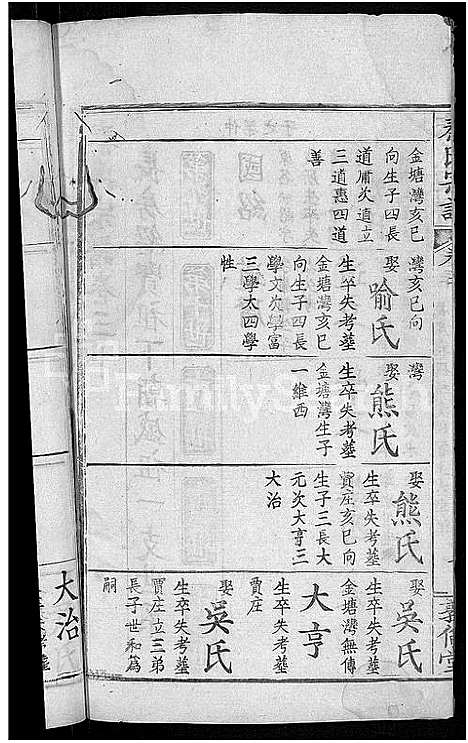 金塘灣亥巳
向生子四長
道庸次道立
三道惠四道
善
灣亥巳向
娶喻氏
生卒失考塟
金塘灣亥巳
向生子四長
學文次學富
三學太四學
性
灣
娶熊氏
生卒失考塟
金塘灣生子
一維西
娶熊氏
生卒失考塟
賈庄亥巳向
生子三長大
元次大亨三
大治
娶吳氏
生卒失考塟
金塘灣無傳
大亨
生卒失考塟
賈庄
娶吳氏
生卒失考塟
賈庄立三弟
長子世和為
嗣
大治